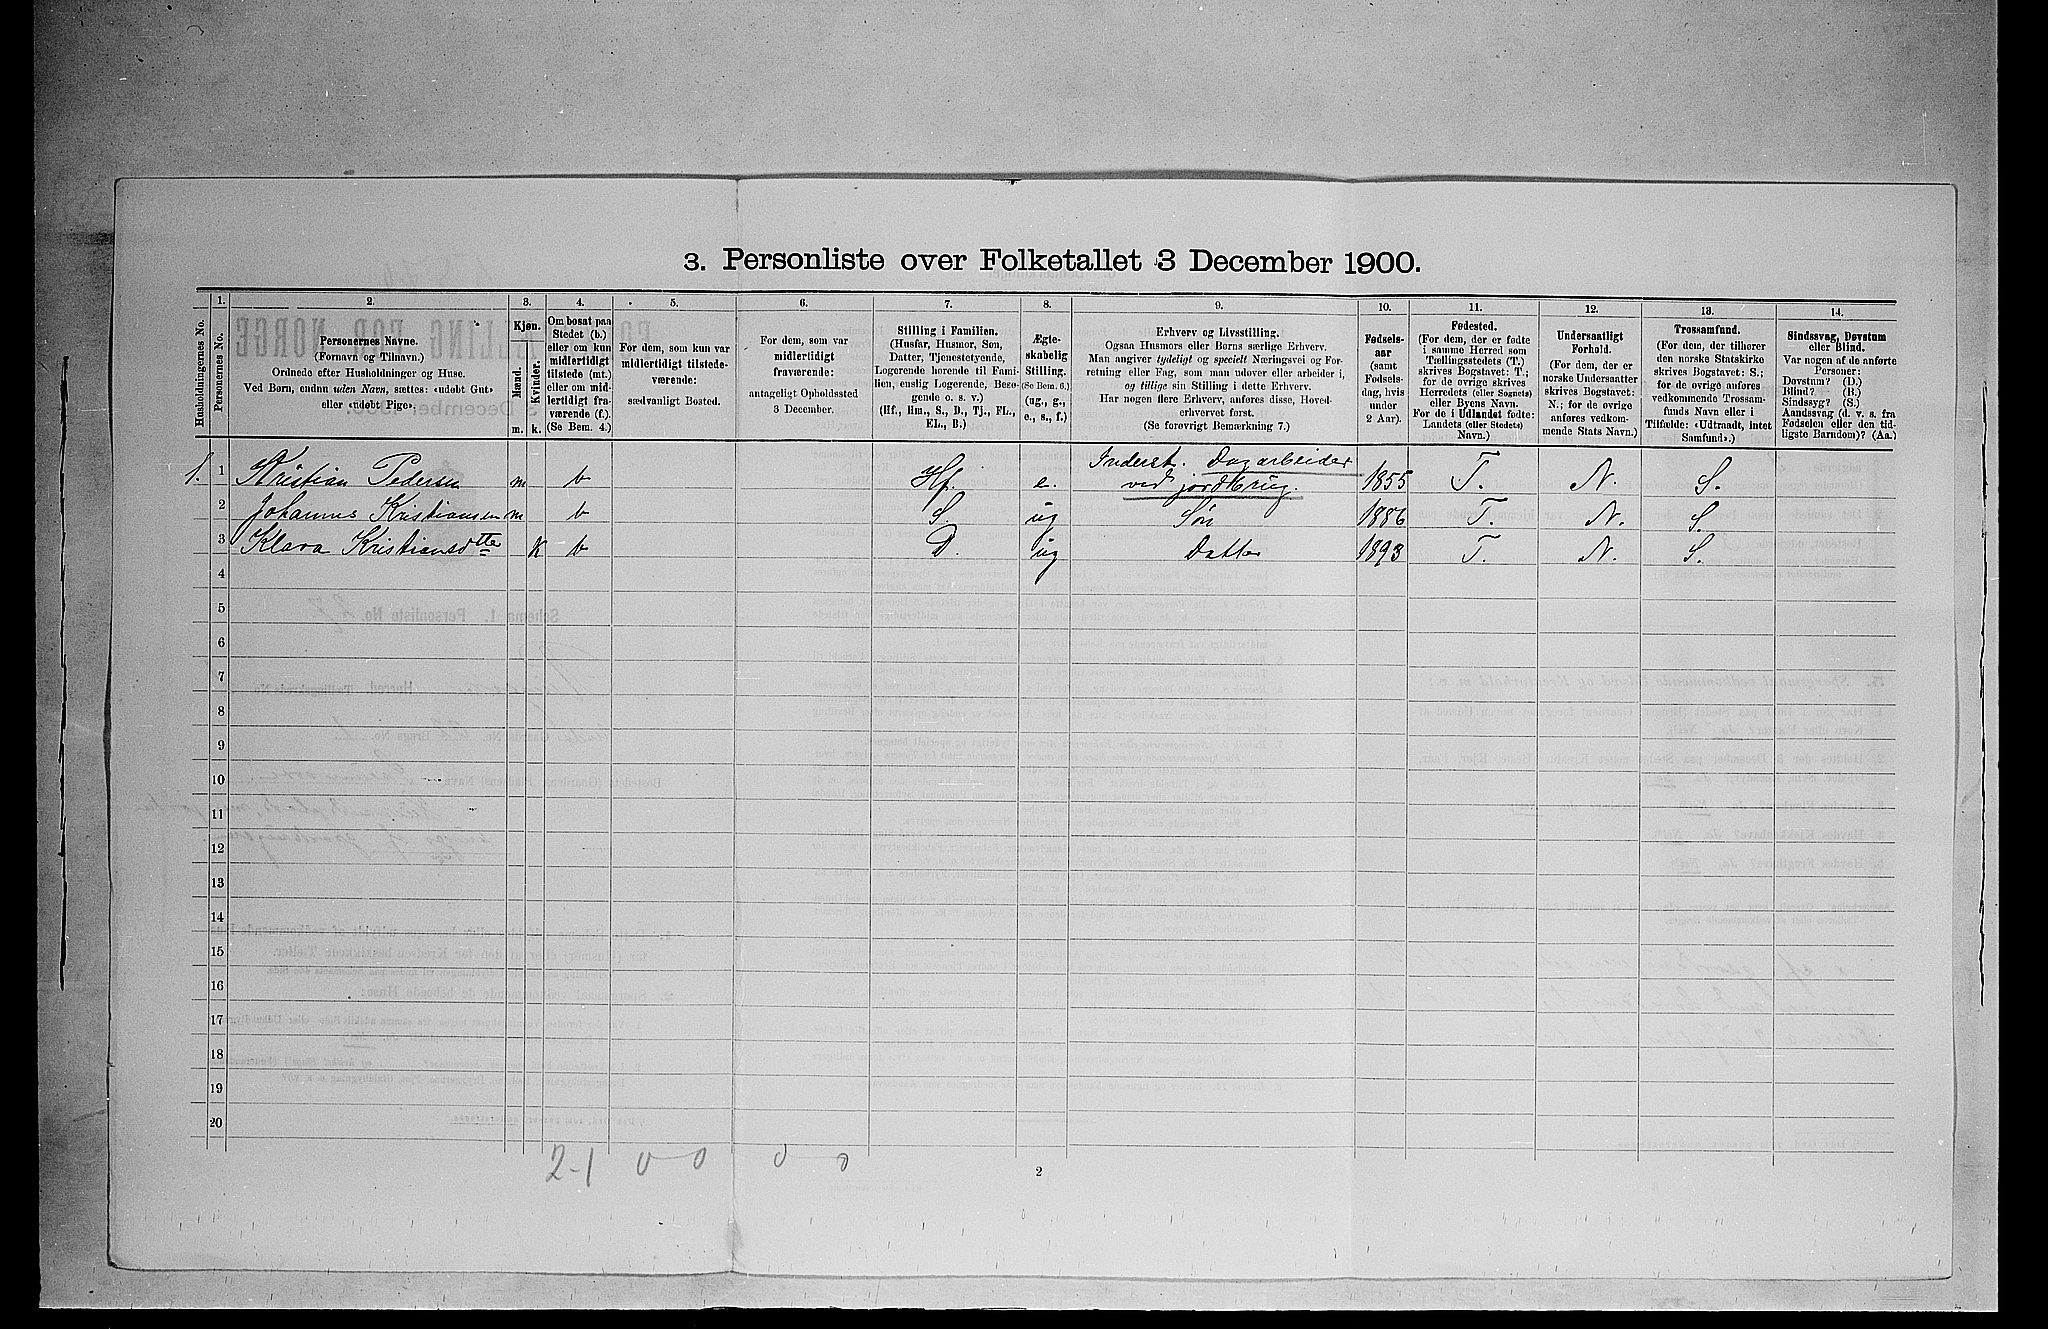 3. Personliste over Folketallet 3 December 1900.
Husholdningernes No.
1.
Personernes No.
2.
Personernes Navne.
(Fornavn og Tilnavn.)
Ordnede efter Husholdninger og Huse.
Ved Børn, endnu uden Navn, sættes: «udøbt Gut»
eller «udøbt Pige».
3.
Kjøn.
Mænd.
Kvinder.
m. k.
4.
Om bosat paa
Stedet (b.)
eller om kun
midlertidigt
tilstede (mt.)
eller om mid-
lertidigt fra-
værende (f.).
(Se Bem. 4.)
5.
For dem, som kun var
midlertidigt tilstede-
værende:
sædvanligt Bosted.
6.
For dem, som var
midlertidigt
fraværende:
antageligt Opholdssted
3 December.
7.
Stilling i Familien.
(Husfar, Husmor, Søn,
Datter, Tjenestetyende,
Logerende hørende til Fami-
lien, enslig Logerende, Besø-
gende o. s. v.)
(Hf., Hm., S., D., Tj., FL.,
EL., B.)
8.
Ægte-
skabelig
Stilling.
(Se Bem. 6.)
(ug., g.,
e., s., f.)
9.
Erhverv og Livsstilling.
Ogsaa Husmors eller Børns særlige Erhverv.
Man angiver tydeligt og specielt Næringsvei og For-
retning eller Fag, som man udøver eller arbeider i,
og tillige sin Stilling i dette Erhverv.
Har nogen flere Erhverv, anføres disse, Hoved-
erhvervet først.
(Se forøvrigt Bemærkning 7.)
10.
Fødsels-
aar
(samt
Fødsels-
dag, hvis
under
2 Aar).
11.
Fødested.
(For dem, der er fødte
i samme Herred som
Tællingsstedets (T.)
skrives Bogstavet: T.;
for de øvrige skrives
Herredets (eller Sognets)
eller Byens Navn.
For de i Udlandet fødte:
Landets (eller Stedets)
Navn.)
12.
Undersaatligt
Forhold.
(For dem, der er
norske Undersaatter
skrives Bogstavet:
N.; for de øvrige
anføres vedkom-
mende Stats Navn.)
13.
Trossamfund.
(For dem, der tilhører
den norske Statskirke
skrives Bogstavet: S.;
for de øvrige anføres
vedkommende Trossam-
funds Navn eller i
Tilfælde: «Udtraadt, intet
Samfund».)
14.
Sindssvag, Døvstum
eller Blind.
Var nogen af de anførte
Personer:
Døvstum? (D.)
Blind? (B.)
Sindssyg? (S.)
Aandssvag (d. v. s. fra
Fødselen eller den tid-
ligste Barndom)? (Aa.)
1. 1 Kristian Pedersen m b Hf. e. Inderst. Dagarbeider ved jordbrug. 1855 T. N. S.
2 Johannes Kristiansen m b S. ug Søn 1886 T. N. S.
3 Klara Kristiansdtte K b D. ug Datter 1893 T. N. S.
4
5
6
7
8
9
10
11
12
13
14
15
16
17
18
19
20
2-1 0 0 0 0
2